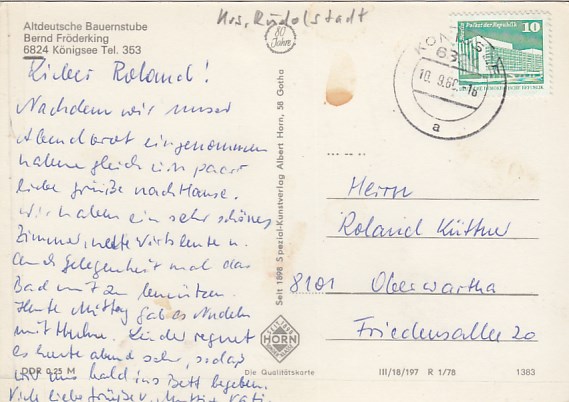 Krs. Rudolstadt
Altdeutsche Bauernstube
Bernd Fröderking
6824 Königsee Tel. 353
80 Jahre
Palast der Republik 10
KÖNIGSEE
a
Lieber Roland!
Nachdem wir unser
Abendbrot eingenommen
haben gleich ein paar
liebe Grüße nach Hause.
Wir haben ein sehr schönes
Zimmer, nette Wirtsleute u.
auch Gelegenheit mal das
Bad mit zu benützen.
Heute Mittag gab es Nudeln
mit Huhn. Leider regnet
es heute abend sehr, sodaß
wir uns bald ins Bett begeben.
Viele liebe Grüße, Mutti u. Vati
Seit 1898 Spezial-Kunstverlag Albert Horn, 58 Gotha
Herrn
Roland Küttner
8101 Oberwartha
Friedensallee 20
HORN
DDR 0,25 M
Die Qualitätskarte
III/18/197 R 1/78
1383